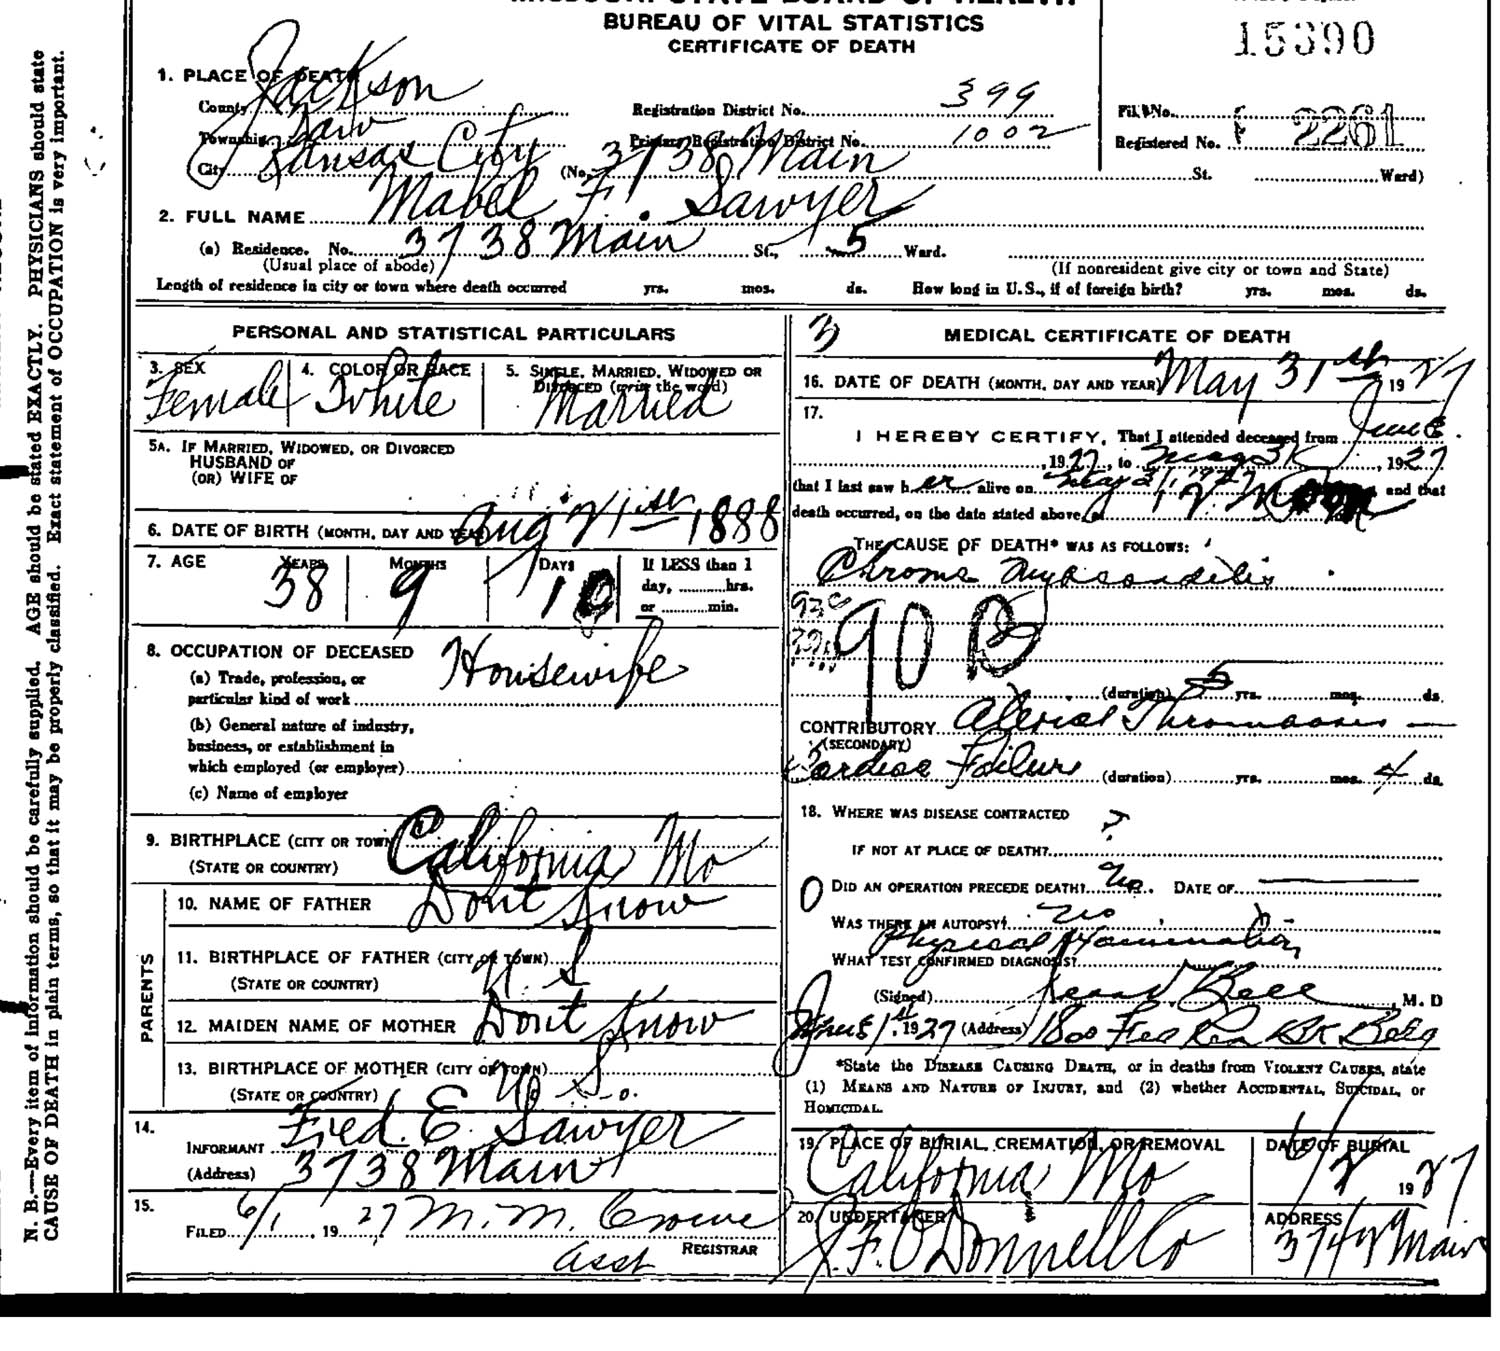 BUREAU OF VITAL STATISTICS
CERTIFICATE OF DEATH
15390
1. PLACE OF DEATH
County Jackson Registration District No. 399 File No.
Township Kaw Primary Registration District No. 1002 Registered No. 2261
City Kansas City (No. 3738 Main St. Ward)
2. FULL NAME Mabel F. Sawyer
(a) Residence. No. 3738 Main St., 5 Ward.
(Usual place of abode) (If nonresident give city or town and State)
Length of residence in city or town where death occurred yrs. mos. ds. How long in U.S., if of foreign birth? yrs. mos. ds.
PERSONAL AND STATISTICAL PARTICULARS
3. SEX 4. COLOR OR RACE 5. SINGLE, MARRIED, WIDOWED OR DIVORCED (write the word)
Female White Married
5A. IF MARRIED, WIDOWED, OR DIVORCED
HUSBAND OF
(OR) WIFE OF
6. DATE OF BIRTH (MONTH, DAY AND YEAR) Aug 21st 1888
7. AGE YEARS MONTHS DAYS If LESS than 1
38 9 10 day, hrs.
or min.
8. OCCUPATION OF DECEASED Housewife
(a) Trade, profession, or
particular kind of work
(b) General nature of industry,
business, or establishment in
which employed (or employer)
(c) Name of employer
9. BIRTHPLACE (CITY OR TOWN) California Mo
(STATE OR COUNTRY)
PARENTS
10. NAME OF FATHER Dont Know
11. BIRTHPLACE OF FATHER (CITY OR TOWN) U. S
(STATE OR COUNTRY)
12. MAIDEN NAME OF MOTHER Dont Know
13. BIRTHPLACE OF MOTHER (CITY OR TOWN) U. S.
(STATE OR COUNTRY)
14.
INFORMANT Fred. E. Sawyer
(Address) 3738 Main
15.
FILED 6/1, 1927 M. M. Crowe
Asst REGISTRAR
3 MEDICAL CERTIFICATE OF DEATH
16. DATE OF DEATH (MONTH, DAY AND YEAR) May 31st 1927
17.
I HEREBY CERTIFY, That I attended deceased from
, 1927, to May 31, 1927
that I last saw her alive on May 31, 1927, and that
death occurred, on the date stated above, at
THE CAUSE OF DEATH* WAS AS FOLLOWS:
Chronic Myocarditis
93c
90 B
(duration) 5 yrs. mos. ds.
CONTRIBUTORY
(SECONDARY)
Cardiac Failure (duration) yrs. mos. 4 ds.
18. WHERE WAS DISEASE CONTRACTED ?
IF NOT AT PLACE OF DEATH?
0 DID AN OPERATION PRECEDE DEATH? No. DATE OF
WAS THERE AN AUTOPSY? No
WHAT TEST CONFIRMED DIAGNOSIS? Physical Examination
(Signed) , M. D
June 1st, 1927 (Address) 1800 Bldg
*State the DISEASE CAUSING DEATH, or in deaths from VIOLENT CAUSES, state
(1) MEANS AND NATURE OF INJURY, and (2) whether ACCIDENTAL, SUICIDAL, or
HOMICIDAL.
19. PLACE OF BURIAL, CREMATION, OR REMOVAL DATE OF BURIAL
California Mo 6/2 1927
20. UNDERTAKER ADDRESS
J. F. O'Donnell Co Main
N. B.—Every item of information should be carefully supplied. AGE should be stated EXACTLY. PHYSICIANS should state
CAUSE OF DEATH in plain terms, so that it may be properly classified. Exact statement of OCCUPATION is very important.